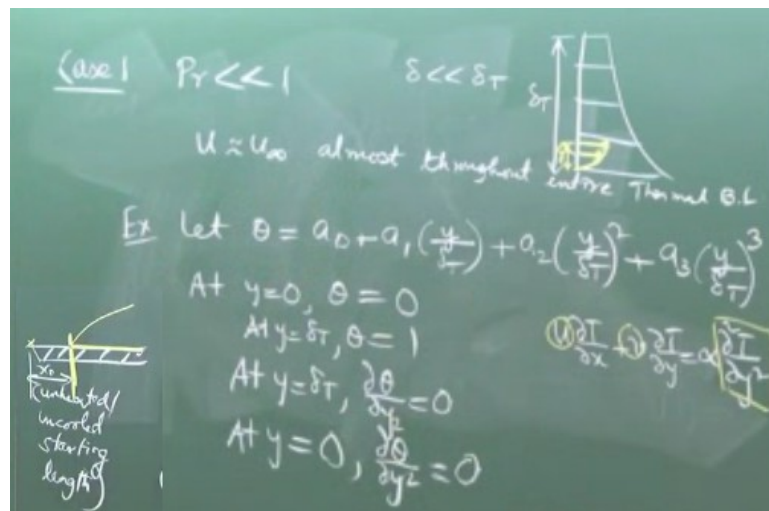 Case 1 Pr << 1 δ << δT
δT
u ≈ u∞ almost throughout entire Thermal B.L
Ex Let θ = a0 + a1 (y/δT) + a2 (y/δT)² + a3 (y/δT)³
At y=0, θ = 0
At y=δT, θ = 1
At y=δT, ∂θ/∂y = 0
At y=0, ∂²θ/∂y² = 0
u ∂T/∂x + v ∂T/∂y = α ∂²T/∂y²
x0
(unheated/
uncooled
starting
length)